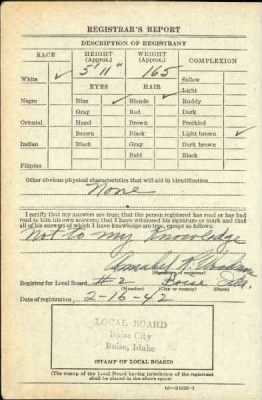 REGISTRAR'S REPORT
DESCRIPTION OF REGISTRANT
RACE HEIGHT (Approx.) WEIGHT (Approx.) COMPLEXION
5' 11" 165
White ✓ Sallow
Light
EYES HAIR
Negro Blue ✓ Blonde ✓ Ruddy
Gray Red Dark
Oriental Hazel Brown Freckled
Brown Black Light brown ✓
Indian Black Gray Dark brown
Bald Black
Filipino
Other obvious physical characteristics that will aid in identification
None
I certify that my answers are true; that the person registered has read or has had
read to him his own answers; that I have witnessed his signature or mark and that
all of his answers of which I have knowledge are true, except as follows:
Not to my Knowledge
(Signature of registrar)
Registrar for Local Board #2 Boise
(Number) (City or county) (State)
Date of registration 2-16-42
LOCAL BOARD
Boise City
Boise, Idaho
(STAMP OF LOCAL BOARD)
(The stamp of the Local Board having jurisdiction of the registrant
shall be placed in the above space)